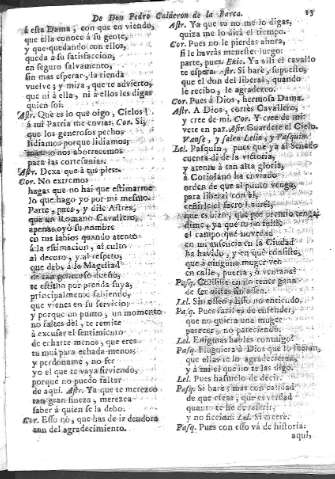 De Don Pedro Calderon de la Barca. 23
à esta Dama, con que en viendo,
que ella conoce à su gente,
y que quedando con ellos,
queda à su satisfaccion,
en seguro salvamento,
sin mas esperar, la tienda
vuelve; y mira, que te advierto,
que ni à ella, ni à ellos les digas
quien soi.
Astr. Què es lo que oigo, Cielos!
à mi Patria me envia? Cor. Si,
que los generosos pechos
lidiamos porque lidiamos,
mas no nos aborrecemos
para las cortesanias.
Astr. Dexa que à tus pies.
Cor. No extremos
hagas que no hai que estimarme
lo que hago yo por mi mesmo.
Parte, pues, y dile, Astrea,
que un Romano Cavallero,
apenas oyò su nombre
en tus labios, quando atento
à la estimacion, al culto
al decoro, y al respeto,
que debe à la Magestad
de tan generoso dueño,
te estima por prenda suya,
principalmente sabiendo,
que vienes en su servicio;
y porque un punto, un momento
no faltes del, te remite
à excusar el sentimiento
de echarte menos, que eres
tu mui para echada menos;
y perdoname, no ser
yo el que te vaya sirviendo,
porque no puedo faltar
de aqui. Astr. Ya que te merezco
tan gran fineza, merezca
saber à quien se la debo.
Cor. Esso no, que has de ir deudora
tan del agradecimiento.
Astr. Ya que tu no me lo digas,
quiza me lo dirà el tiempo.
Cor. Pues no le pierdas ahora,
si le havràs menester luego:
parte, pues. Exic. Ya està el cavallo
te espera. Astr. Si harè, supuesto,
que el honor, que de ti recibo,
le recibo, le agradezco.
Cor. Pues à Dios, hermosa Dama.
Astr. A Dios, cortès Cavallero,
y cree de mi. Cor. Y cree de mi:
vete en paz. Astr. Guardete el Cielo.
Vanse, y salen Lelio, y Pasquin.
Lel. Pasquin, pues que ya al Senado
cuenta di de la victoria,
y atento à tan alta gloria,
à Coriolano ha enviado
orden de que al punto venga,
para
que es bien, que por premio tenga,
dime, ya que tu
el campo, què novedad
en mi ausencia en la Ciudad
ha havido, y en què consiste,
que à ninguna muger veo
en calle, puerta, ò ventana?
Pasq. Consiste en no tener gana
de ser vistas
Lel. Sin asseo? no entiendo.
Pasq. Pues facil es de entender,
que no quiera una muger
parecer, no pareciendo.
Lel. Enigmas hablas conmigo?
Pasq. Pluguiera à Dios que lo fueran,
que ellas te lo agradecieran,
y à mi el que no te las digo.
Lel. Pues hasmelo de decir.
Pasq. Si harè; mas con calidad
de que creas, que es verdad
quanto te he de referir,
y no ficcion. Lel. Si creerè.
Pasq. Pues con esso và de historia:
aqui,